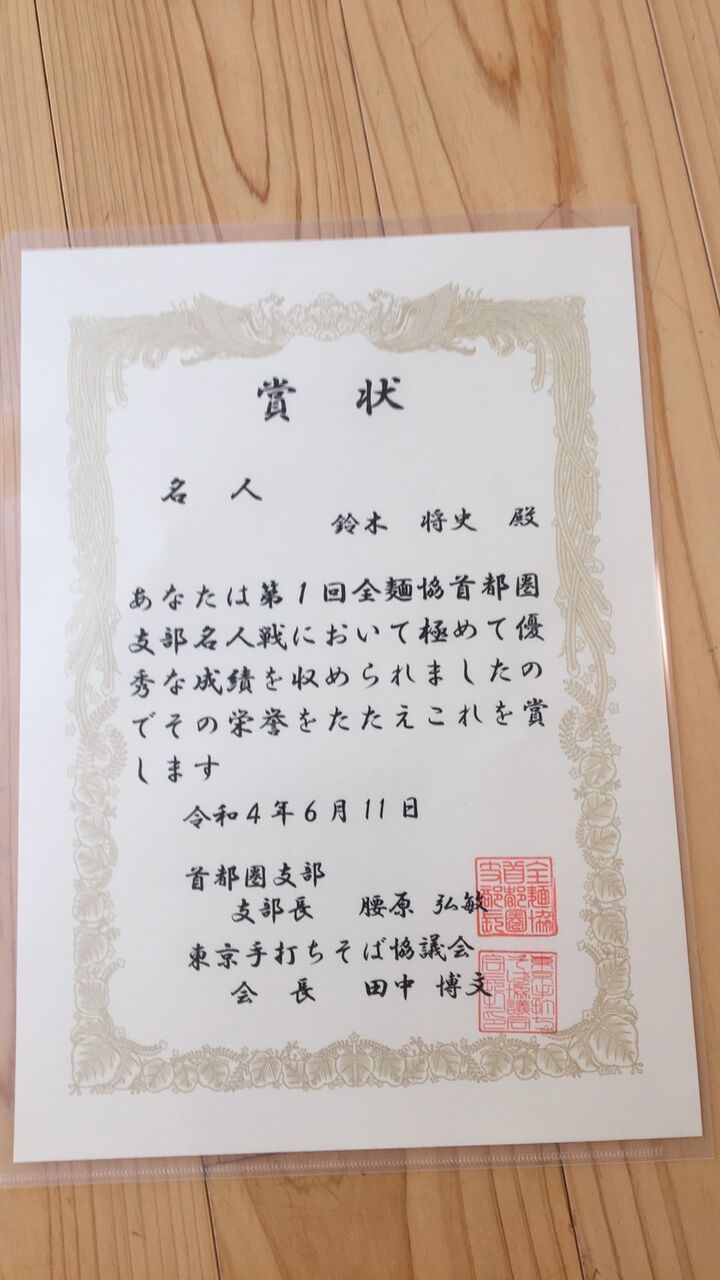 賞 状
名 人
鈴木 将史 殿
あなたは第1回全麺協首都圏
支部名人戦において極めて優
秀な成績を収められましたの
でその栄誉をたたえこれを賞
します
令和4年6月11日
首都圏支部
支部長 腰原 弘敏
全麺協首都圏支部長
東京手打ちそば協議会
会 長 田中 博文